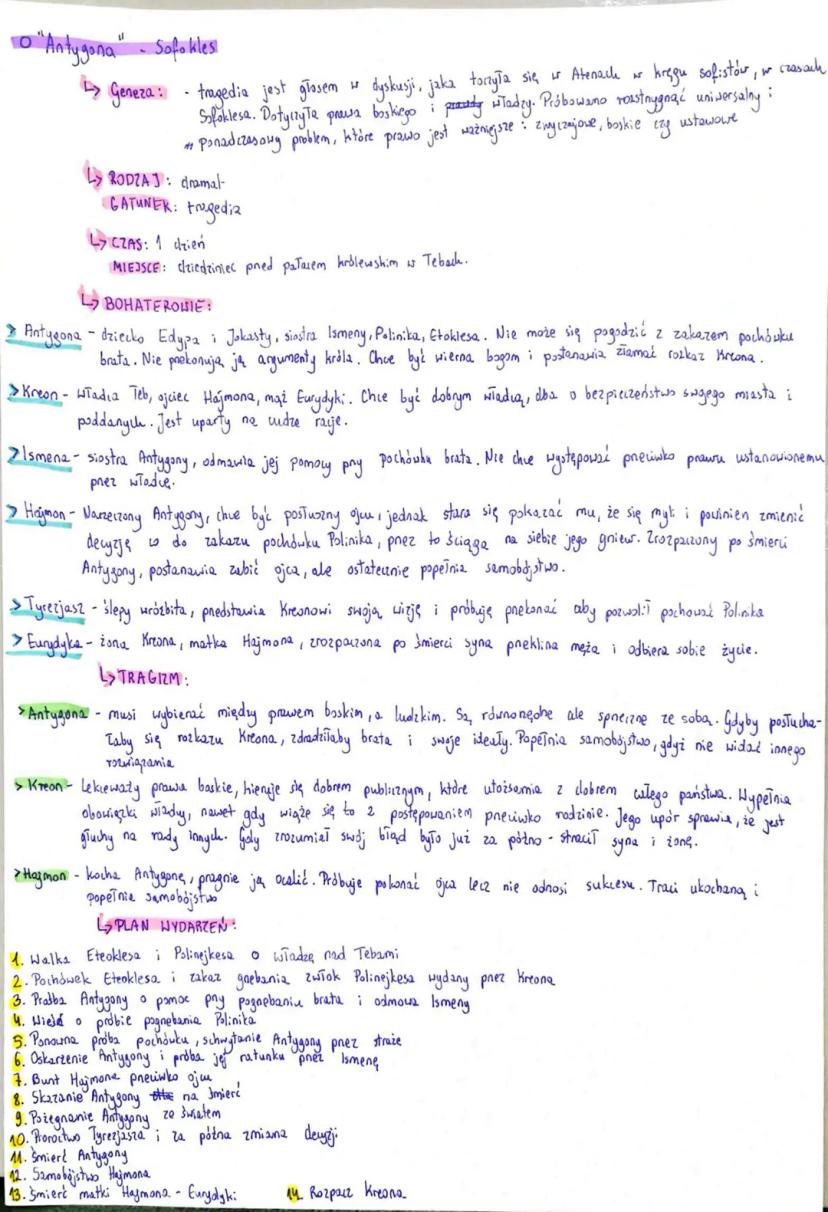 "Antygona" - Sofokles
↳ Geneza: - tragedia jest głosem w dyskusji, jaka toczyła się w Atenach w kręgu sofistów, w czasach
Sofoklesa. Dotyczyła prawa boskiego i władzy. Próbowano rozstrzygnąć uniwersalny i
ponadczasowy problem, które prawo jest ważniejsze: zwyczajowe, boskie czy ustawowe
↳ RODZAJ: dramat
GATUNEK: tragedia
↳ CZAS: 1 dzień
MIEJSCE: dziedziniec przed pałacem królewskim w Tebach.
↳ BOHATEROWIE:
> Antygona - dziecko Edypa i Jokasty, siostra Ismeny, Polinika, Etoklesa. Nie może się pogodzić z zakazem pochówku
brata. Nie przekonują ją argumenty króla. Chce być wierna bogom i postanawia złamać rozkaz Kreona.
> Kreon - władca Teb, ojciec Hajmona, mąż Eurydyki. Chce być dobrym władcą, dba o bezpieczeństwo swojego miasta i
poddanych. Jest uparty na cudze racje.
> Ismena - siostra Antygony, odmawia jej pomocy przy pochówku brata. Nie chce występować przeciwko prawu ustanowionemu
przez władcę.
> Hajmon - Narzeczony Antygony, chce być posłuszny ojcu, jednak stara się pokazać mu, że się myli i powinien zmienić
decyzję co do zakazu pochówku Polinika, przez to ściąga na siebie jego gniew. Zrozpaczony po śmierci
Antygony, postanawia zabić ojca, ale ostatecznie popełnia samobójstwo.
> Tyrezjasz - ślepy wróżbita, przedstawia Kreonowi swoją wizję i próbuję przekonać aby pozwolił pochować Polinika
> Eurydyka - żona Kreona, matka Hajmona, zrozpaczona po śmierci syna przeklina męża i odbiera sobie życie.
↳ TRAGIZM:
> Antygona - musi wybierać między prawem boskim, a ludzkim. Są równorzędne ale sprzeczne ze sobą. Gdyby posłucha-
łaby się rozkazu Kreona, zdradziłaby brata i swoje ideały. Popełnia samobójstwo, gdyż nie widać innego
rozwiązania
> Kreon - Lekceważy prawa boskie, kieruje się dobrem publicznym, które utożsamia z dobrem całego państwa. Wypełnia
obowiązki władcy, nawet gdy wiąże się to z postępowaniem przeciwko rodzinie. Jego upór sprawia, że jest
głuchy na rady innych. Gdy zrozumiał swój błąd było już za późno - stracił syna i żonę.
> Hajmon - kocha Antygonę, pragnie ją ocalić. Próbuje pokonać ojca lecz nie odnosi sukcesu. Traci ukochaną i
popełnia samobójstwo
↳ PLAN WYDARZEŃ:
1. Walka Eteoklesa i Polinejkesa o władzę nad Tebami
2. Pochówek Eteoklesa i zakaz grzebania zwłok Polinejkesa wydany przez Kreona
3. Prośba Antygony o pomoc przy pogrzebaniu brata i odmowa Ismeny
4. Wieść o próbie pogrzebania Polinika
5. Ponowna próba pochówku, schwytanie Antygony przez straże
6. Oskarżenie Antygony i próba jej ratunku przez Ismenę
7. Bunt Hajmona przeciwko ojcu
8. Skazanie Antygony na śmierć
9. Pożegnanie Antygony ze światem
10. Proroctwo Tyrezjasza i za późna zmiana decyzji
11. Śmierć Antygony
12. Samobójstwo Hajmona
13. Śmierć matki Hajmona - Eurydyki 14. Rozpacz Kreona